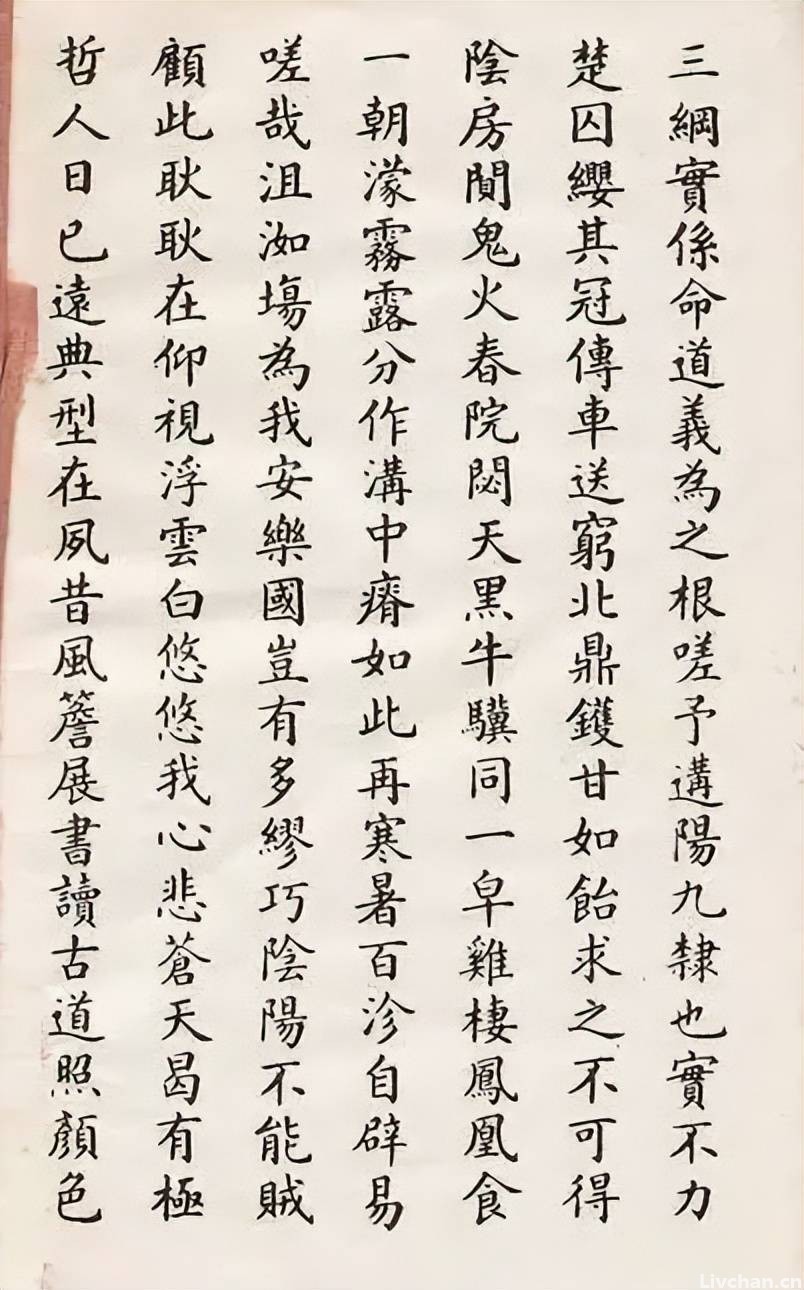 三綱實係命道義為之根嗟予遘陽九隸也實不力
楚囚纓其冠傳車送窮北鼎鑊甘如飴求之不可得
陰房閴鬼火春院閟天黑牛驥同一皁雞棲鳳凰食
一朝濛霧露分作溝中瘠如此再寒暑百沴自辟易
嗟哉沮洳場為我安樂國豈有多繆巧陰陽不能賊
顧此耿耿在仰視浮雲白悠悠我心悲蒼天曷有極
哲人日已遠典型在夙昔風簷展書讀古道照顏色
Livchan.cn